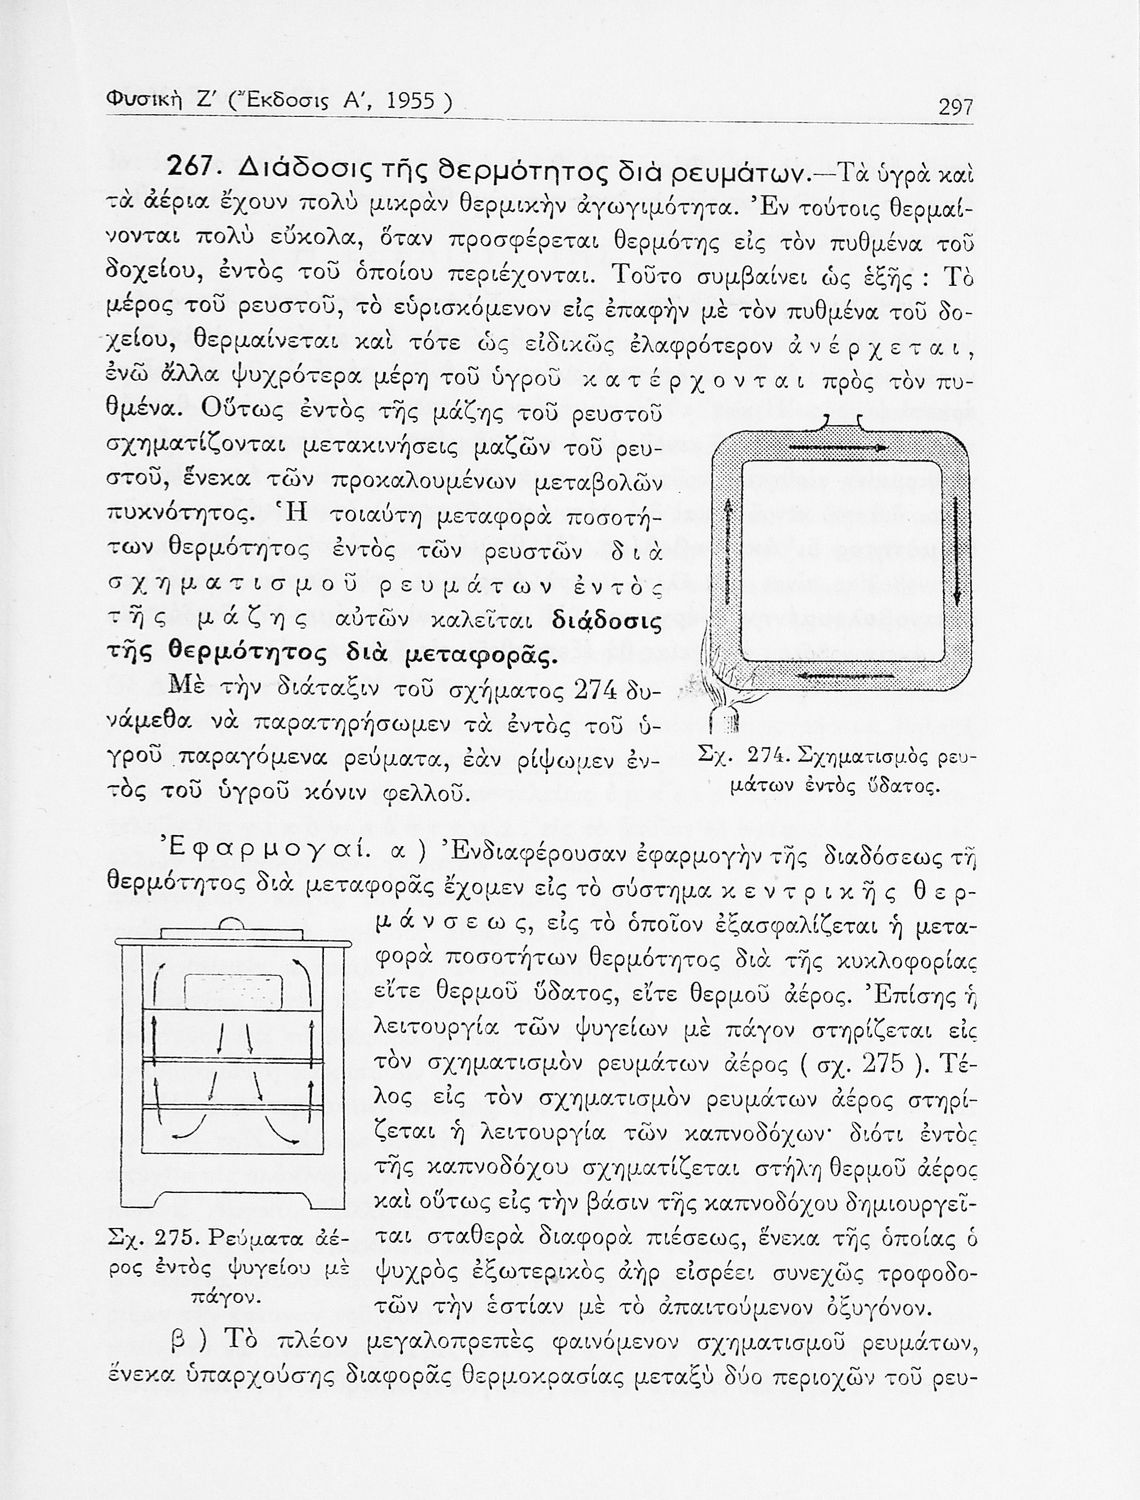 Φυσικὴ Ζ′ (Ἔκδοσις Α′, 1955 )
297
267. Διάδοσις τῆς θερμότητος διὰ ρευμάτων.—Τὰ ὑγρὰ καὶ
τὰ ἀέρια ἔχουν πολὺ μικρὰν θερμικὴν ἀγωγιμότητα. Ἐν τούτοις θερμαί-
νονται πολὺ εὔκολα, ὅταν προσφέρεται θερμότης εἰς τὸν πυθμένα τοῦ
δοχείου, ἐντὸς τοῦ ὁποίου περιέχονται. Τοῦτο συμβαίνει ὡς ἑξῆς : Τὸ
μέρος τοῦ ρευστοῦ, τὸ εὑρισκόμενον εἰς ἐπαφὴν μὲ τὸν πυθμένα τοῦ δο-
χείου, θερμαίνεται καὶ τότε ὡς εἰδικῶς ἐλαφρότερον ἀνέρχεται,
ἐνῶ ἄλλα ψυχρότερα μέρη τοῦ ὑγροῦ κατέρχονται πρὸς τὸν πυ-
θμένα. Οὕτως ἐντὸς τῆς μάζης τοῦ ρευστοῦ
σχηματίζονται μετακινήσεις μαζῶν τοῦ ρευ-
στοῦ, ἕνεκα τῶν προκαλουμένων μεταβολῶν
πυκνότητος. Ἡ τοιαύτη μεταφορὰ ποσοτή-
των θερμότητος ἐντὸς τῶν ρευστῶν διὰ
σχηματισμοῦ ρευμάτων ἐντὸς
τῆς μάζης αὐτῶν καλεῖται διάδοσις
τῆς θερμότητος διὰ μεταφορᾶς.
Μὲ τὴν διάταξιν τοῦ σχήματος 274 δυ-
νάμεθα νὰ παρατηρήσωμεν τὰ ἐντὸς τοῦ ὑ-
γροῦ παραγόμενα ρεύματα, ἐὰν ρίψωμεν ἐν-
τὸς τοῦ ὑγροῦ κόνιν φελλοῦ.
Σχ. 274. Σχηματισμὸς ρευ-
μάτων ἐντὸς ὕδατος.
Ἐφαρμογαί. α ) Ἐνδιαφέρουσαν ἐφαρμογὴν τῆς διαδόσεως τῆ
θερμότητος διὰ μεταφορᾶς ἔχομεν εἰς τὸ σύστημα κεντρικῆς θερ-
μάνσεως, εἰς τὸ ὁποῖον ἐξασφαλίζεται ἡ μετα-
φορὰ ποσοτήτων θερμότητος διὰ τῆς κυκλοφορίας
εἴτε θερμοῦ ὕδατος, εἴτε θερμοῦ ἀέρος. Ἐπίσης ἡ
λειτουργία τῶν ψυγείων μὲ πάγον στηρίζεται εἰς
τὸν σχηματισμὸν ρευμάτων ἀέρος ( σχ. 275 ). Τέ-
λος εἰς τὸν σχηματισμὸν ρευμάτων ἀέρος στηρί-
ζεται ἡ λειτουργία τῶν καπνοδόχων· διότι ἐντὸς
τῆς καπνοδόχου σχηματίζεται στήλη θερμοῦ ἀέρος
καὶ οὕτως εἰς τὴν βάσιν τῆς καπνοδόχου δημιουργεῖ-
ται σταθερὰ διαφορὰ πιέσεως, ἕνεκα τῆς ὁποίας ὁ
ψυχρὸς ἐξωτερικὸς ἀὴρ εἰσρέει συνεχῶς τροφοδο-
τῶν τὴν ἑστίαν μὲ τὸ ἀπαιτούμενον ὀξυγόνον.
Σχ. 275. Ρεύματα ἀέ-
ρος ἐντὸς ψυγείου μὲ
πάγον.
β ) Τὸ πλέον μεγαλοπρεπὲς φαινόμενον σχηματισμοῦ ρευμάτων,
ἕνεκα ὑπαρχούσης διαφορᾶς θερμοκρασίας μεταξὺ δύο περιοχῶν τοῦ ρευ-